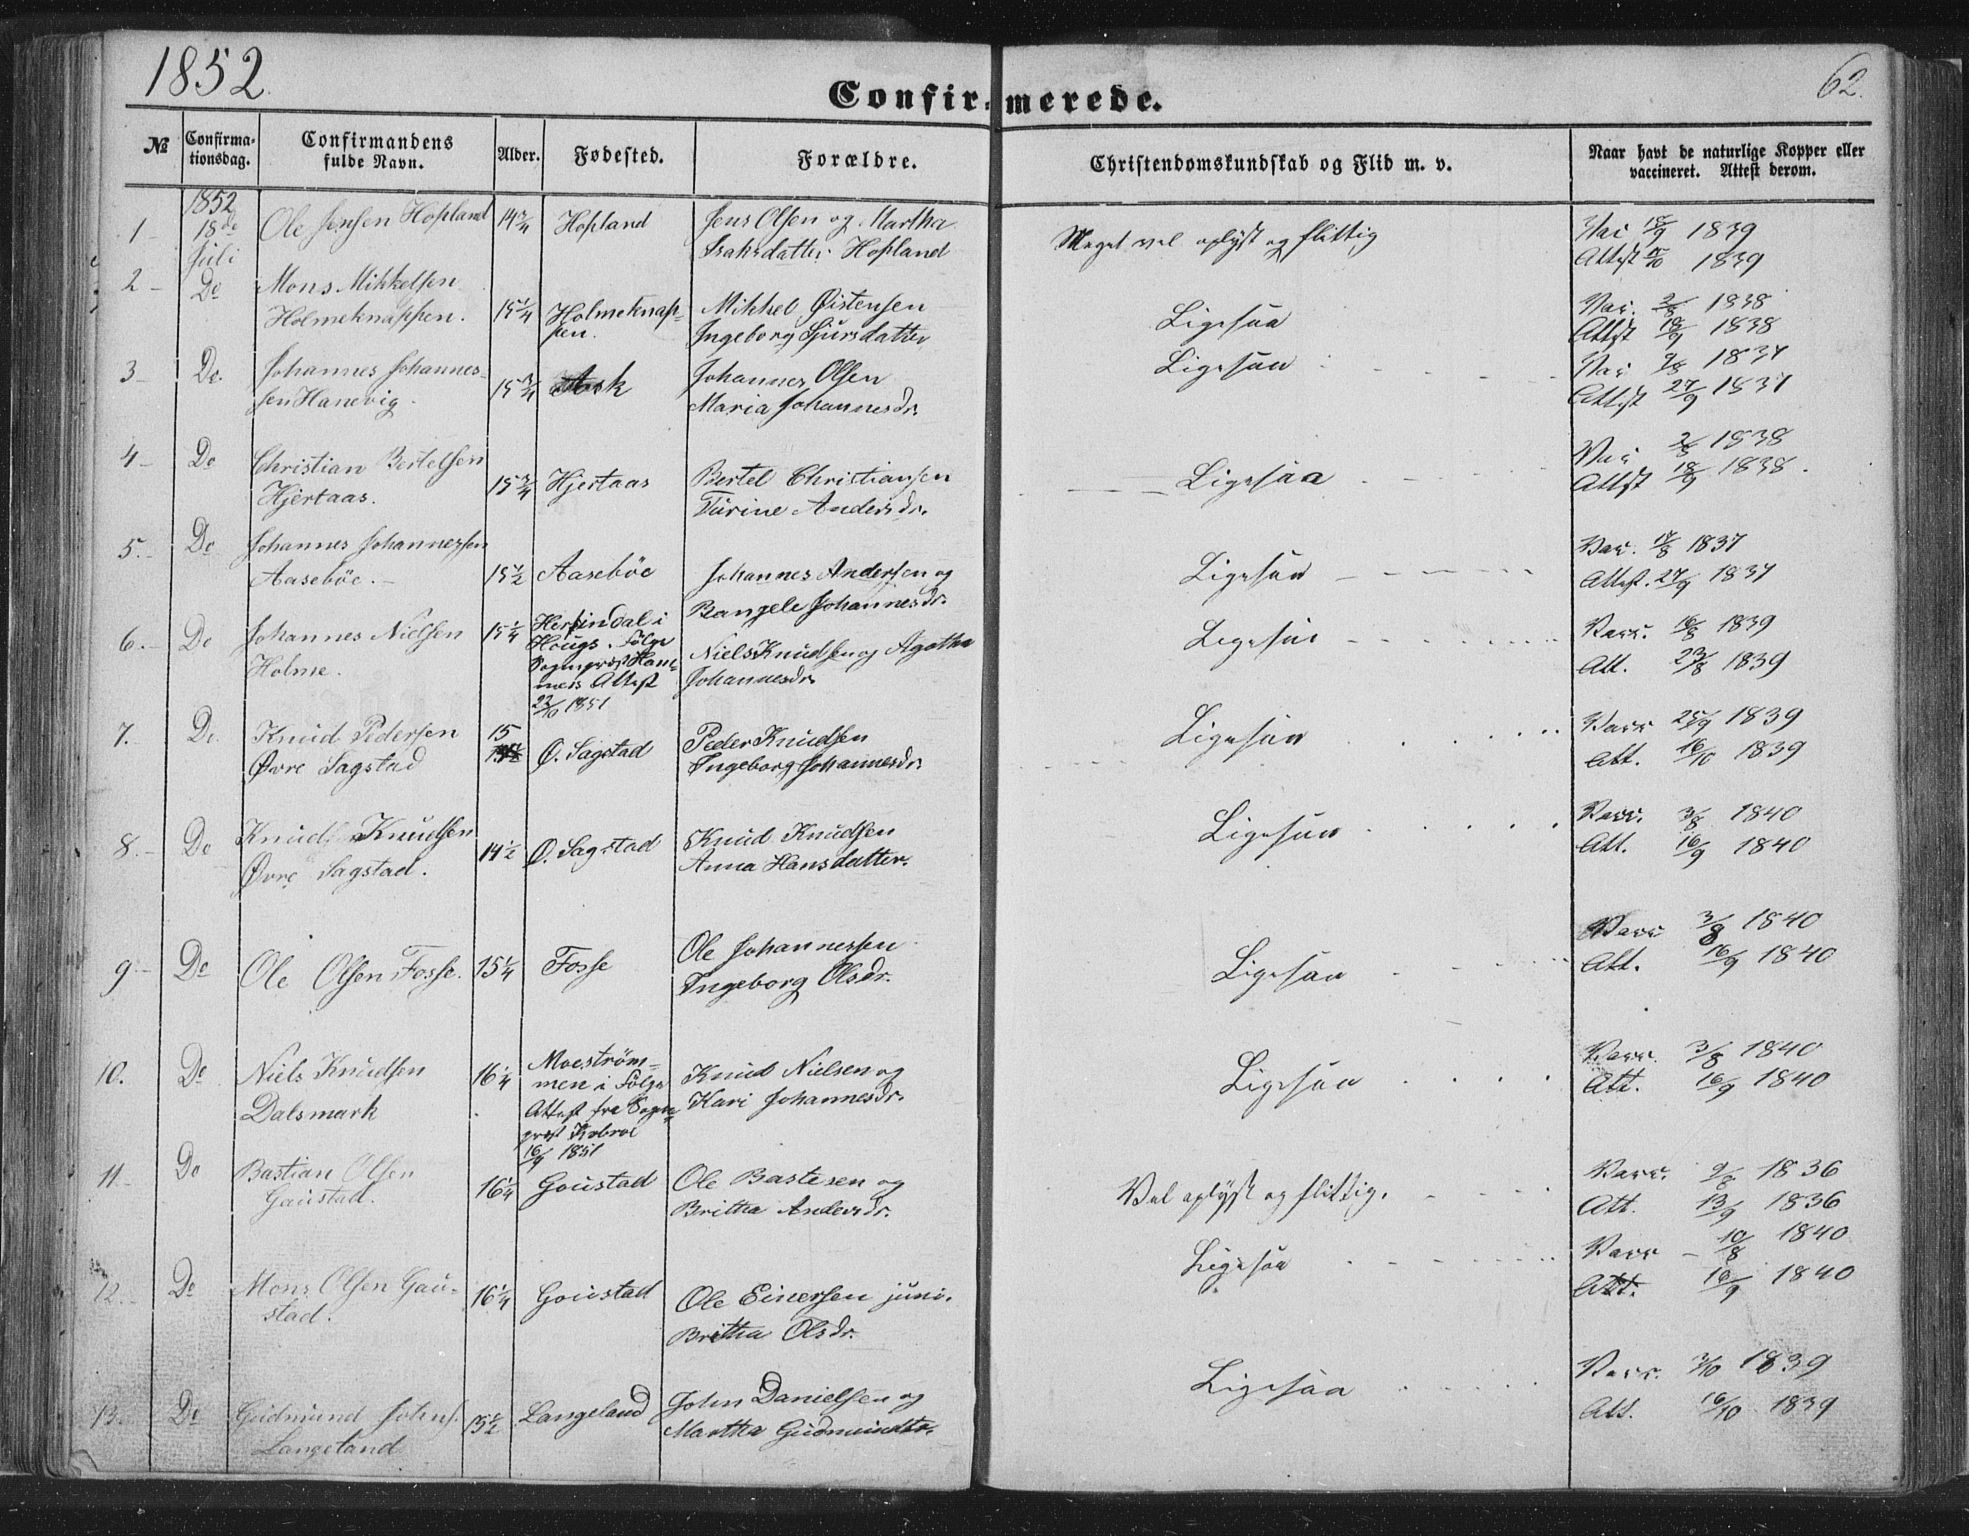 1852.
62.
Confirmerede.
№
Confirma-
tionsdag.
Confirmandens
fulde Navn.
Alder.
Fødested.
Forældre.
Christendomskundskab og Flid m. v.
Naar havt de naturlige Kopper eller
vaccineret. Attest derom.
1852
1 18de Ole Jensen Hopland 14 3/4 Hopland Jens Olsen og Martha Meget vel oplyst og flittig Vac 18/9 1839
Juli Isaksdatter Hopland Attest 1839
2 Do Mons Mikkelsen
Holmeknappen. 15 1/4 Holmeknap- Mikkel Øistensen Ligesaa Vac. 2/8 1838
pen. Ingeborg Sjursdatter Attest 18/9 1838
3 Do. Johannes Johannes- 15 3/4 Ask Johannes Olsen Ligesaa Vac 9/8 1837
sen Hanevig. Maria Johannesdr. Attest 27/9 1837
4 Do Christian Bertelsen 15 3/4 Hjertaas Bertel Christiansen Ligesaa Vac 2/8 1838
Hjertaas. Turine Andersdr. Attst 18/9 1838.
5. Do Johannes Johannessen Vac. 1837
Aasebøe. 15 1/2 Aasebøe Johannes Andersen og Ligesaa Attest. 27/9 1837
Johannesdr.
6. Do Johannes Nielsen 15 1/4 Herfindal i Ligesaa Vacc. 16/8 1839
Holme. Hougs. Følge Niels Knudsen og Agatha Att. 23/8 1839
Sognepræst Ham-
mers Attest Johannesdr.
22/10 1851
7. Do. Knud Pedersen 15 Peder Knudsen Ligesaa Vacc 25/9 1839
Øvre Sagstad Ø. Sagstad Ingeborg Johannesdr. Att. 16/10 1839
8. Do Knud Knudsen 14 1/2 Ø. Sagstad Knud Knudsen Ligesaa Vacc. 3/8 1840
Øvre Sagstad. Anna Hansdatter. Att. 16/9 1840
9 Do Ole Olsen Fosse. 15 1/4 Fosse Ole Johannessen Ligesaa Vacc 3/8 1840
Ingeborg Olsdr. Att. 16/9 1840
10. Do Niels Knudsen 16 1/4 Moestrøm- Knud Nielsen og Ligesaa Vacc. 3/8 1840
Dalsmark men i Følge Kari Johannesdr. Att. 16/9 1840
Attest fra Sogne-
præst
16/9 1851
11 Do Bastian Olsen 16 1/4 Goustad Ole Bastesen og Vel oplyst og flittig. Vacc. 9/8 1836
Gaustad. Britha Andersdr. Att. 13/9 1836
12. Do Mons Olsen Gau- 16 1/4 Goustad Ole Einersen juni. Ligesaa Vacc 10/8 1840
stad. Britha Olsdr. Att. 16/9 1840
13 Do Gudmund Johns. 15 1/2 Langeland John Danielsen og Ligesaa Vacc. 1839
Langeland Martha Gudmundsdr. Att. 16/10 1839